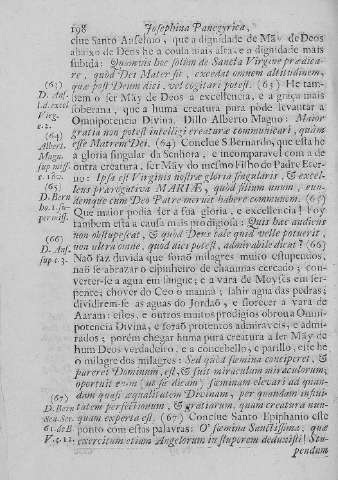 198 Josephina Panegyrica,
clue Santo Anselmo, que a dignidade de Mãy de Deos
abaxo de Deos he a cousa mais alta, e a dignidade mais
subida: Quamvis hoc solum de Sancta Virgine prædica-
re, quod Dei Mater sit, excedat omnem altitudinem,
que post Deum dici, vel cogitari potest. (63) He tam-
bem o ser Mãy de Deos a excellencia, e a graça mais
soberana, que a huma creatura pura póde levantar a
Omnipotencia Divina. Disso Alberto Magno: Maior
gratia non potest intelligi creatura communicari, quàm
esse Matrem Dei. (64) Conclue S Bernardo, que esta he
a gloria singular da Senhora, e incomparavel com a de
outra creatura, ser Mãy do mesmo Filho do Padre Eter-
no: Ipsa est Virginis nostræ gloria singularis, & excel-
lens prærogativa MARIÆ, quod filium unum, eun-
demque cum Deo Patre meruit habere communem. (65)
Que maior podia ser a sua gloria, e excellencia! Foy
tambem esta a causa mais prodigiosa: Quis hac audiens
non obstupescat, & quod Deus tale quid velle potuerit,
non ultra omne, quod dici potest, admirabile dicat? (66)
Naõ faz duvida que foraõ milagres muito estupendos,
naõ se abrazar o espinheiro de chammas cercado; con-
verter-se a agua em sangue; e a vara de Moyses em ser-
pente; chover do Ceo o manná; sahir agua das pedras;
dividirem-se as aguas do Jordaõ, e florecer a vara de
Aaram: estes, e outros muitos prodigios obrou a Omni-
potencia Divina, e foraõ protentos admiraveis, e admi-
rados; porém chegar huma pura creatura a ser Mãy de
hum Deos verdadeiro, e a concebello, e parillo, este he
o milagre dos milagres: Sed quòd fœmina conciperet, &
pareret Dominum, est, & fuit miraculum miraculorum;
oportuit enim (ut sic dicam) fœminam elevari ad quan-
dam quasi æqualitatem Divinam, per quandam infini-
tatem perfectionum, & gratiarum, quam creatura nun-
quam experta est. (67) Conclue Santo Epiphanio este
ponto com estas palavras: O fœmina Sanctissima, quæ
exercitum etiam Angelorum in stuporem deduxisti! Stu-
pendum
(63)
D. Ansl.
Virg.
c. 2.
(64)
Albert.
Magn.
sup miss.
c. 180.
(65)
D. Bern
ho. 1. su-
per miss.
(66)
D. Ans.
sup c. 3.
(67)
D. Bern